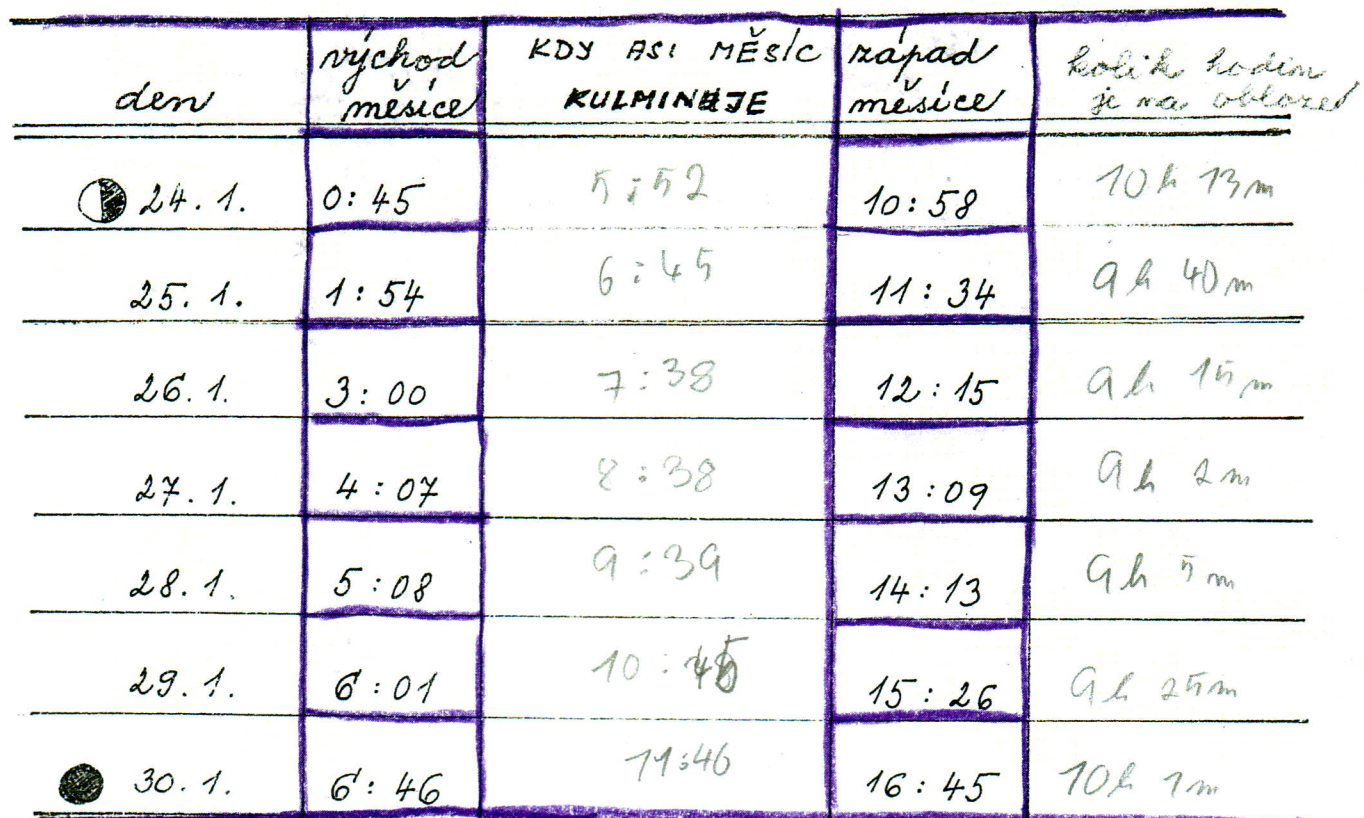 den východ měsíce KDY ASI MĚSÍC KULMINUJE západ měsíce kolik hodin je na obloze
24. 1. 0:45 5:52 10:58 10 h 13 m
25. 1. 1:54 6:45 11:34 9 h 40 m
26. 1. 3:00 7:38 12:15 9 h 15 m
27. 1. 4:07 8:38 13:09 9 h 2 m
28. 1. 5:08 9:39 14:13 9 h 5 m
29. 1. 6:01 15:26 9 h 25 m
30. 1. 6:46 11:46 16:45 10 h 1 m